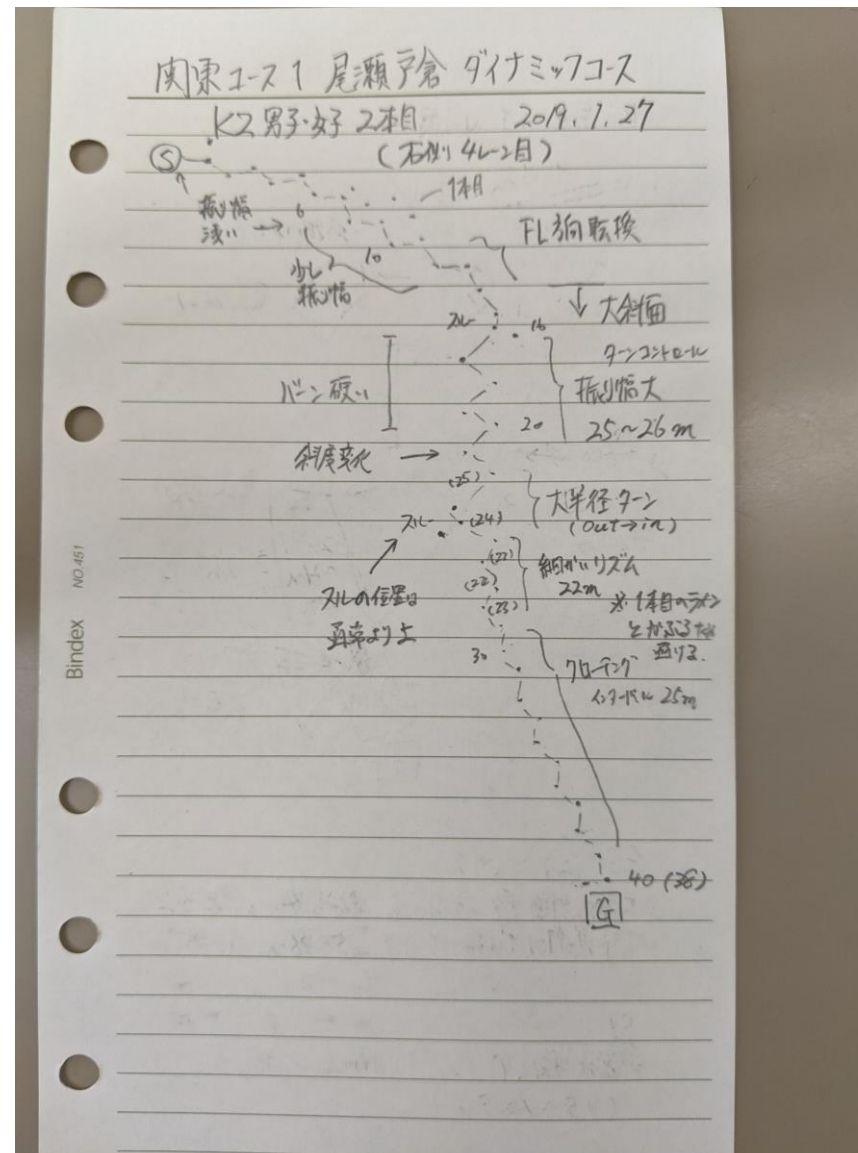 関東コース1 尾瀬戸倉 ダイナミックコース
K2 男子・女子 2本目 2019.1.27
(右側 4レーン目)
S
1本目
振り幅
浅い →
6
10
少し
振り幅
FL方向転換
↓ 大斜面
スルー
16
ターンコントロール
バーン硬い
振り幅大
20
25~26m
斜度変化 →
(25)
大半径ターン
(out→in)
スルー
(24)
(22)
細かいリズム
(22)
22m
(23)
スルの位置は
通常より上
※1本目のライン
とかぶるため
避ける.
30
クローチング
インターバル 25m
40 (38)
G
Bindex NO.451